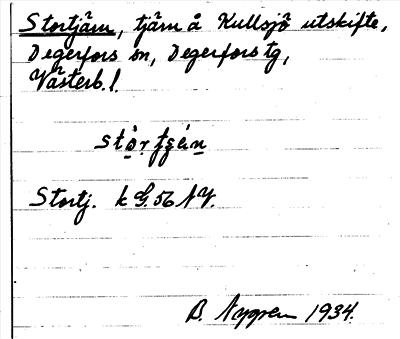 Stortjärn, tjärn å Kullsjö utskifte,
Degerfors sn, Degerfors tg,
Västerb. l.
Stortj. k G. 56 NV.
B. Nygren 1934.